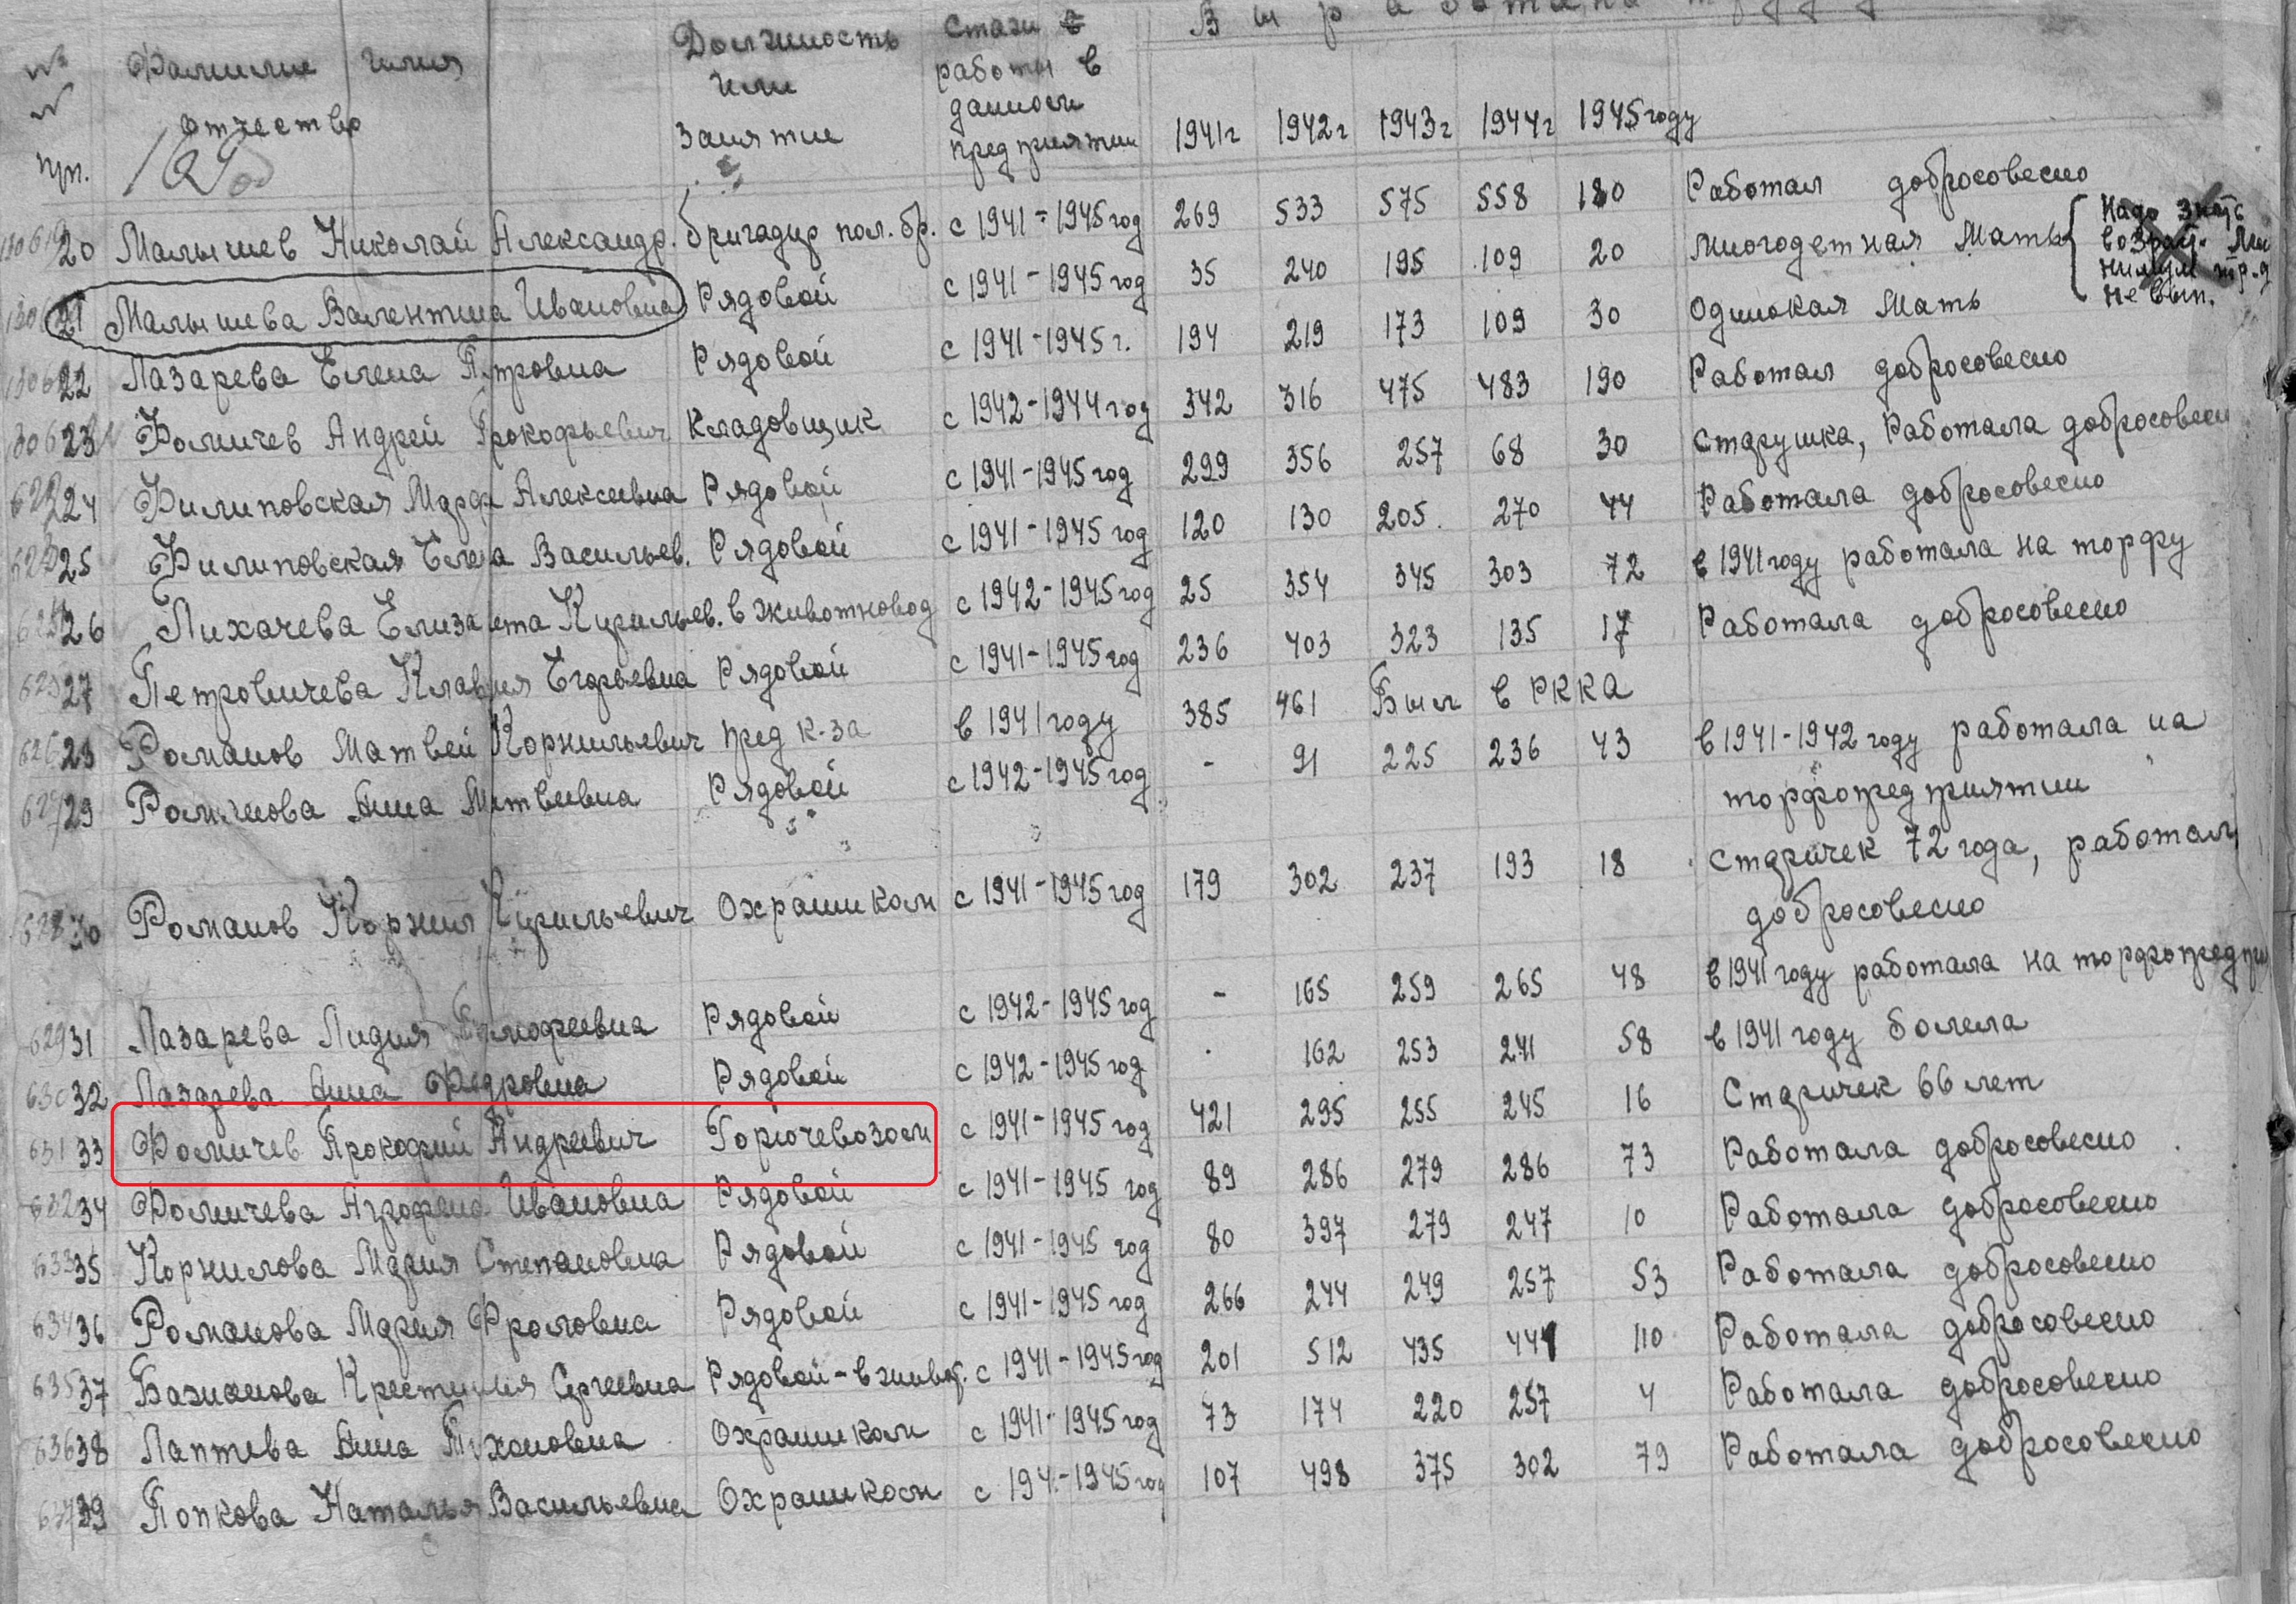 № Фамилие имя Должность Стаж в Выработано
№ отчество или работы в
пп. занятие данном
предприятии 1941г 1942г 1943г 1944г 1945году
20 Малышев Николай Александр. бригадир пол. бр. с 1941-1945 год 269 533 575 558 180 Работал добросовесно
21 Малышева Валентина Ивановна Рядовой с 1941-1945 год 35 240 195 109 20 многодетная Мать { Надо знать возраст. Ми нимум тр.д не вып.
22 Лазарева Елена Петровна Рядовой с 1941-1945 г. 194 219 173 109 30 Одинокая Мать
23 Фомичев Андрей Прокофьевич Кладовщик с 1942-1944 год 342 316 475 483 190 Работал добросовесно
24 Филиповская Марфа Алексеевна Рядовой с 1941-1945 год 299 356 257 68 30 Старушка, Работала добросовесн
25 Филиповская Елена Васильев. Рядовой с 1941-1945 год 120 130 205 270 44 Работала добросовесно
26 Лихачева Елизавета Кирильев. в животновод с 1942-1945 год 25 354 345 303 72 в 1941 году работала на торфу
27 Петровичева Клавдия Егорьевна Рядовой с 1941-1945 год 236 403 323 135 17 Работала добросовесно
28 Романов Матвей Корнильевич пред к-за в 1941 году 385 461 Был в РККА
29 Романова Анна Матвеевна Рядовой с 1942-1945 год - 91 225 236 43 в 1941-1942 году работала на
торфопредприятии
30 Романов Корнил Кирильевич Охраником с 1941-1945 год 179 302 237 193 18 Старичек 72 года, работал
добросовесно
31 Лазарева Лидия Тимофеевна Рядовой с 1942-1945 год - 165 259 265 48 в 1941 году работала на торфопредпри
32 Лазарева Анна Федровна Рядовой с 1942-1945 год . 162 253 241 58 в 1941 году болела
33 Фомичев Прокофий Андреевич Горючевозом с 1941-1945 год 421 295 255 245 16 Старичек 66 лет
34 Фомичева Агрофена Ивановна Рядовой с 1941-1945 год 89 286 279 286 73 Работала добросовесно
35 Корнилова Мария Степановна Рядовой с 1941-1945 год 80 397 279 247 10 Работала добросовесно
36 Романова Мария Фроловна Рядовой с 1941-1945 год 266 244 249 257 53 Работала добросовесно
37 Бажанова Крестиния Сергеевна Рядовой-в живот. с 1941-1945 год 201 512 435 444 110 Работала добросовесно
38 Лаптева Анна Тихоновна Охраником с 1941-1945 год 73 174 220 257 4 Работала добросовесно
39 Попкова Наталья Васильевна Охраником с 194.-1945 год 107 498 375 302 79 Работала добросовесно